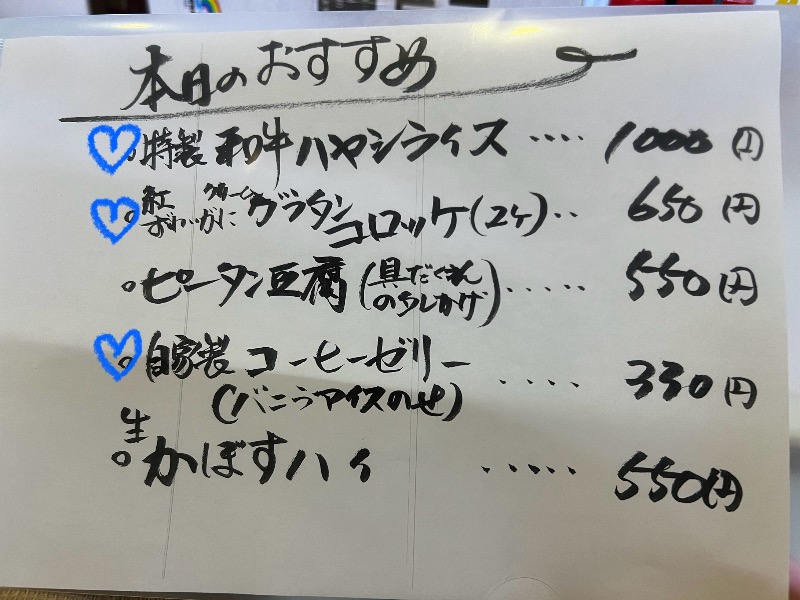 本日のおすすめ
特製 和牛ハヤシライス ‥‥ 1000円
紅ずわいがに クリーム グラタンコロッケ(2ケ)‥ 650円
ピータン豆腐(具だくさんのらしかけ)‥‥‥ 550円
自家製 コーヒーゼリー
(バニラアイスのせ) ‥‥ 330円
生かぼすハイ ‥‥‥ 550円